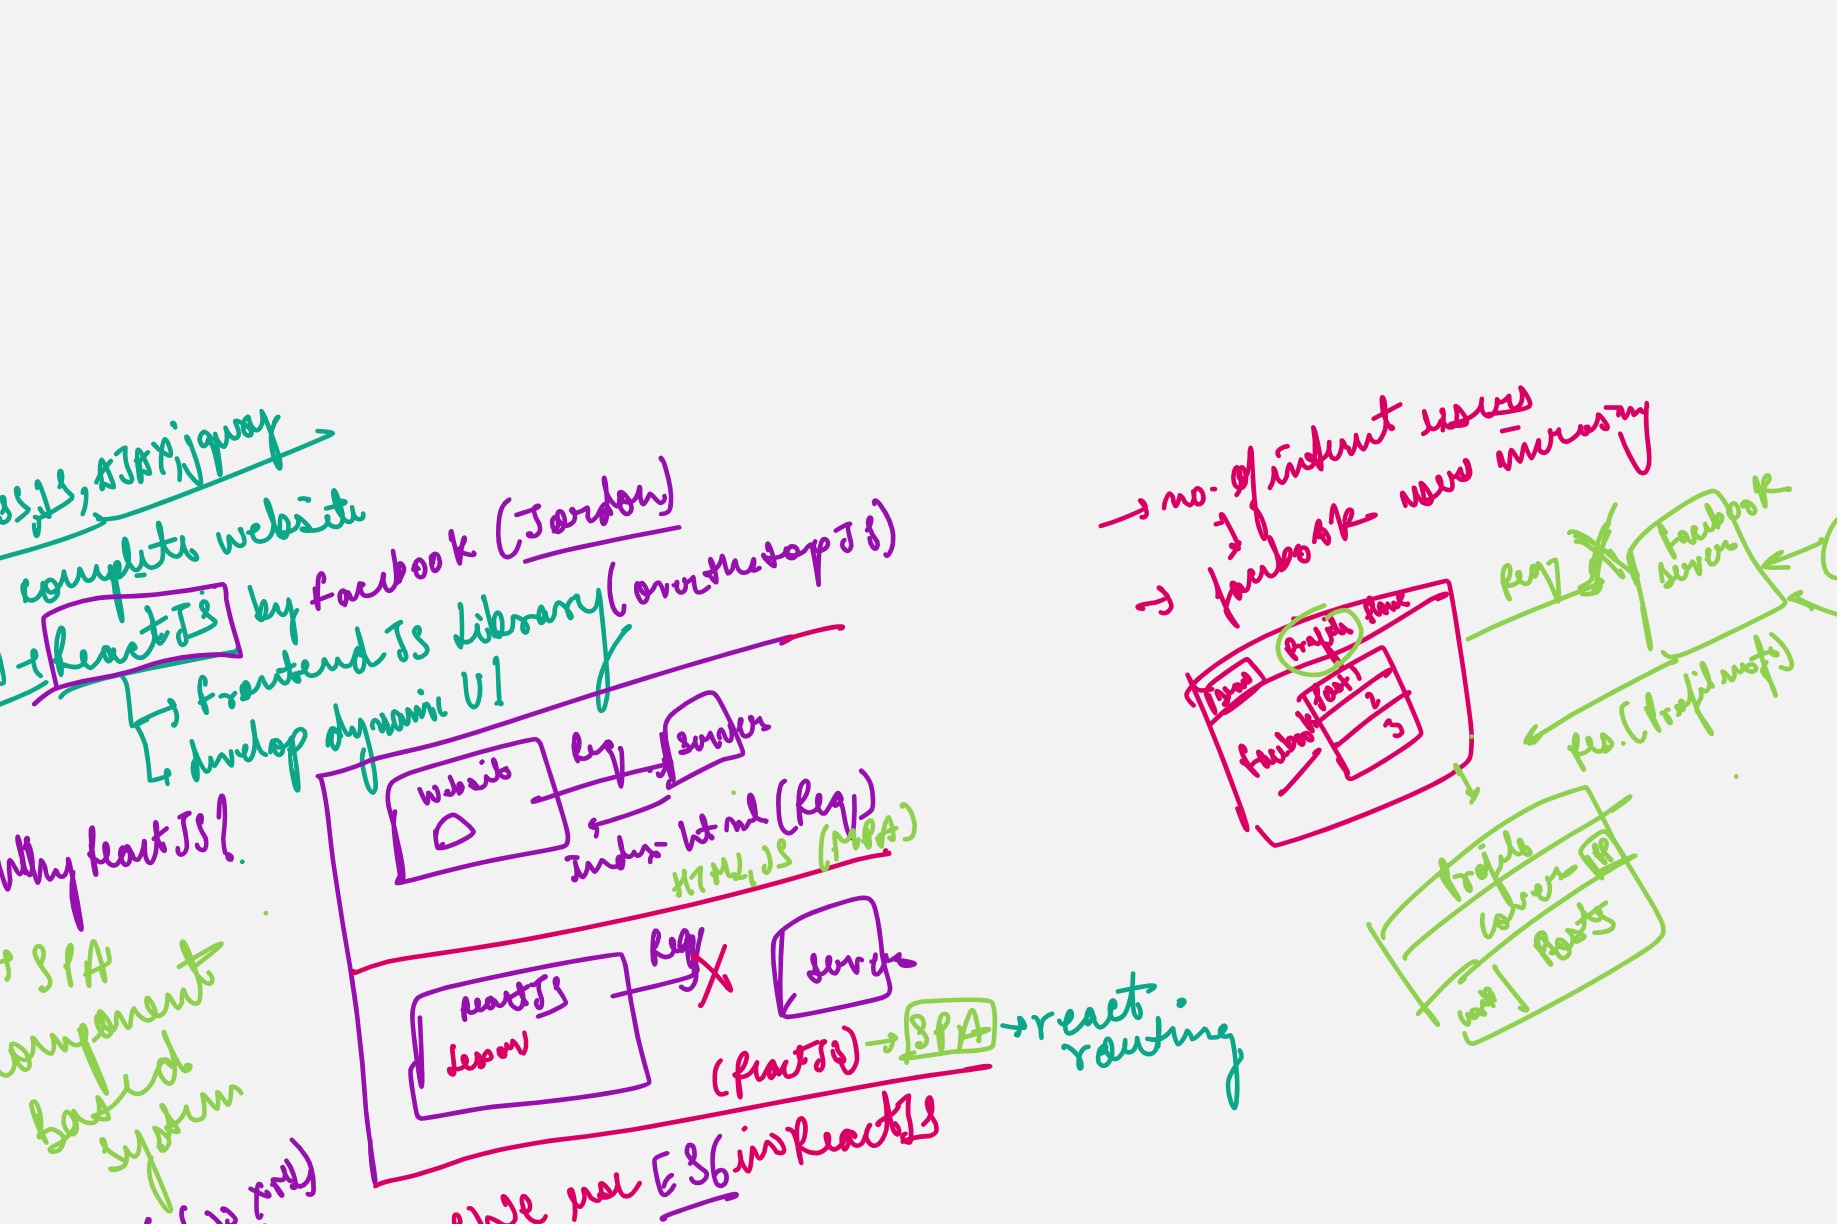 SS, JS, AJAX, jquery
complete website
ReactJS by facebook (Jordon)
frontend JS Library (overthetopJS)
develop dynamic UI
Why ReactJS?
SPA
component
based
system
website
Req
server
Index.html (Req)
HTML, JS (MPA)
ReactJS
Lesson
Req
server
(ReactJS) → SPA → react
routing
we use ES6 in ReactJS
→ no. of internet users
→ facebook users increasing
Profile
Facebook
Post 1
2
3
Req
Facebook
server
Res. (Profile
Profile
cover PP
Posts